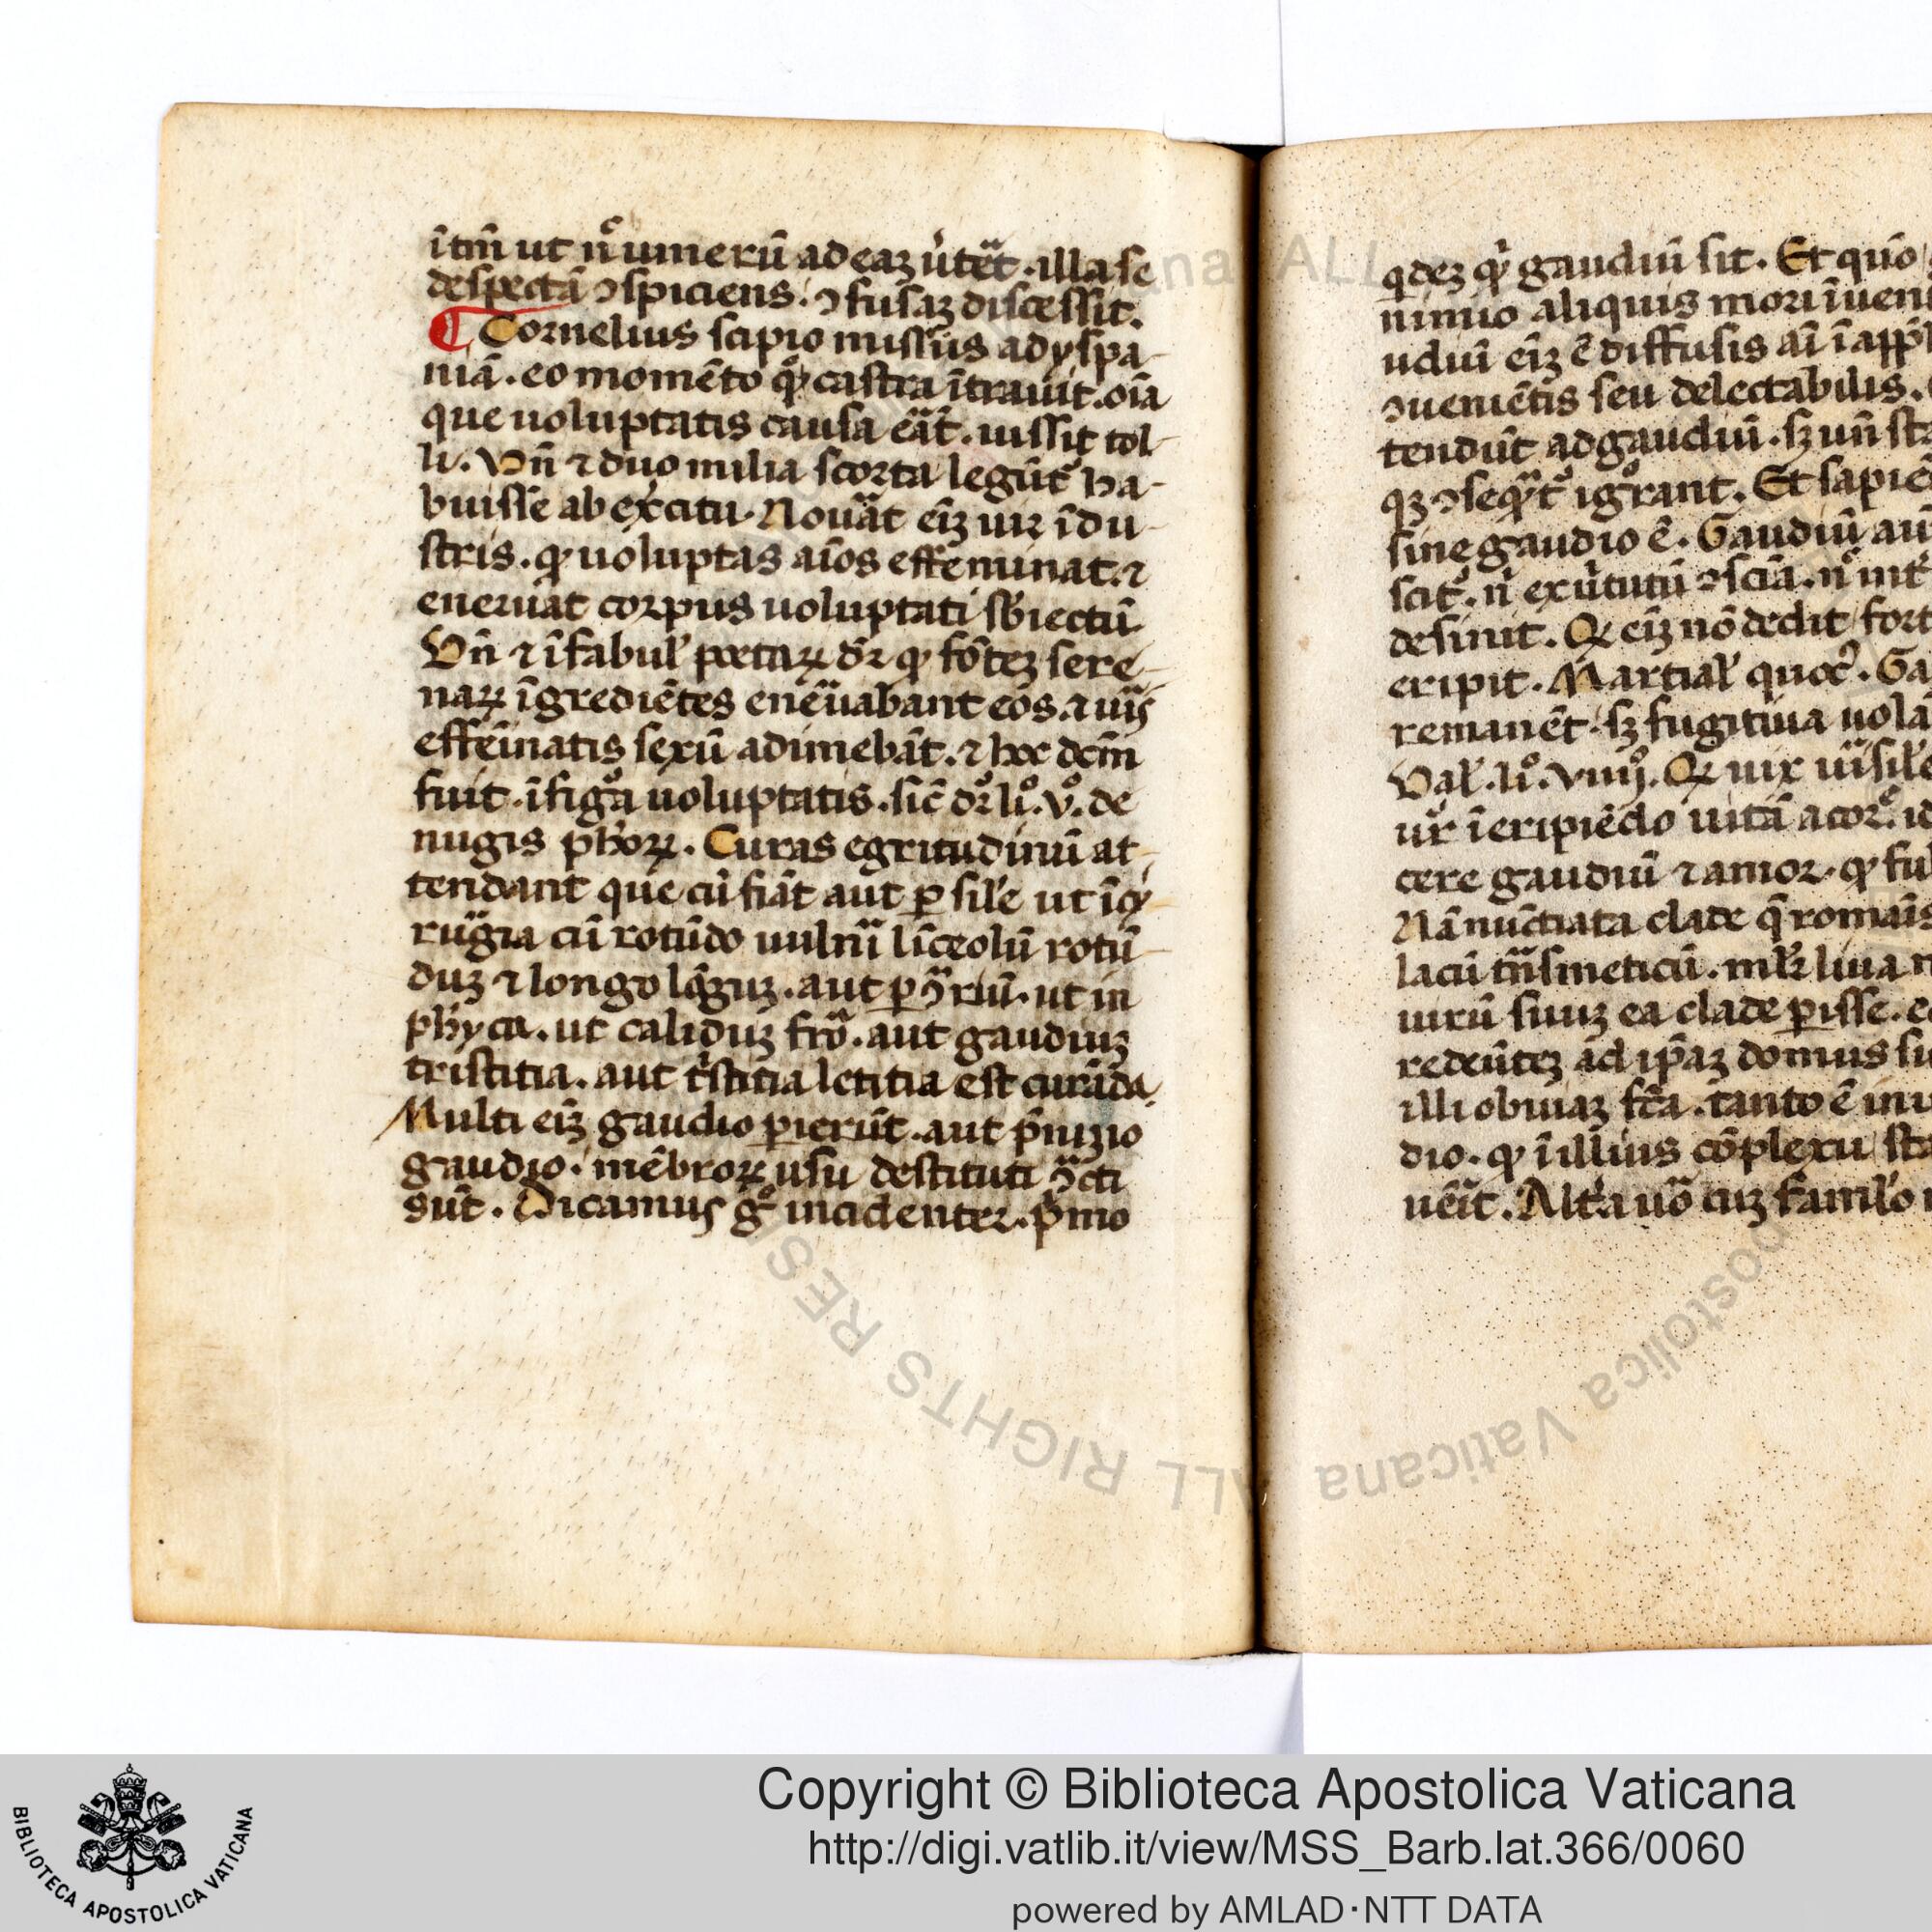 ītm̄ ut nͦ umerū ad eaꝫ u̇tēt. illa se
despectā ɔspiciens. ɔfusaꝫ discessit.
Cornelius scipio missus ad yspa-
niā. eo momēto qͦ castra ītrauit. oīa
que uoluptatis causa eāt. iussit tol-
li. Vn̄ ⁊ duo milia scorta legūt ha-
buisse ab ex̓citu. Nouāt eīꝫ uir īdu-
stris. ꝙ uoluptas aīos effeminat. ⁊
eneruat corpus uoluptati sb̓iectū
Vn̄ ⁊ ī fabul̓ poetaꝝ dr̄ ꝙ fōteꝫ sere-
naꝝ īgrediētes enēuabant eos. ⁊ uiīs
effēinatis sexū adimebāt. ⁊ hoc dcm̄
fuit. ī figͣ uoluptatis. sic̄ dr̄ liͦ. vͦ. de
nugis ph̓oꝝ. Curas egritudinū at-
tendant que cū fiāt aut ꝑ sil̓e ut ī cy-
rugia cū rotūdo uuln̄i līceolū rotū-
duꝫ ⁊ longo lōguꝫ. aut ꝑ ɔͣriū. ut in
ph̓yca. ut caliduꝫ frō. aut gaudiuꝫ
tristitia. aut tr̓stitia letitia est curāda.
Multi eīꝫ gaudio ꝑierūt. aut p̄nizio
gaudio. mēbroꝝ usu destituti ɔͣcti
sūt. Dicamus gͦ incidenter. p̄mo
qdeꝫ qͥ gaudiū sit. Et quō
nimio aliquis mori īueni
udiū eīꝫ ē diffusis aī ī app̄
ɔueniētis seu delectabilis.
tendūt ad gaudiū. sꝫ un̄ sta
qꝫ ɔseqͣt̄ igͦrant. Et sapiē
sine gaudio ē. Gaudiū aū
scit̄. n̓ ex u̇tutū ɔsciā. nͦ int̓
desinit. Q̄ eīꝫ nō dedit fort
eripit. Martial̓ quoc̓. Ga
remanēt. sꝫ fugitiua uola
Val̓. liͦ. viiijͦ. Q̄ uix uīsil̓e
ur̄ ī eripiēdo uitā a corͤ. id
cere gaudiū ⁊ amor. ꝙ ful
Nā nūctiata clade q̄ romāis
lacū tn̄smeticū. ml̓r liua n
uirū suuꝫ ea clade ꝑisse. e
redeūteꝫ ad ip̄aꝫ domus su
illi obuiaꝫ fc̄a. tanto ē inu
dio. ꝙ ī illius cōplexu sta
uēit. Alt̓a uō cuꝫ famil̓o
Copyright © Biblioteca Apostolica Vaticana
http://digi.vatlib.it/view/MSS_Barb.lat.366/0060
powered by AMLAD·NTT DATA
BIBLIOTECA APOSTOLICA VATICANA